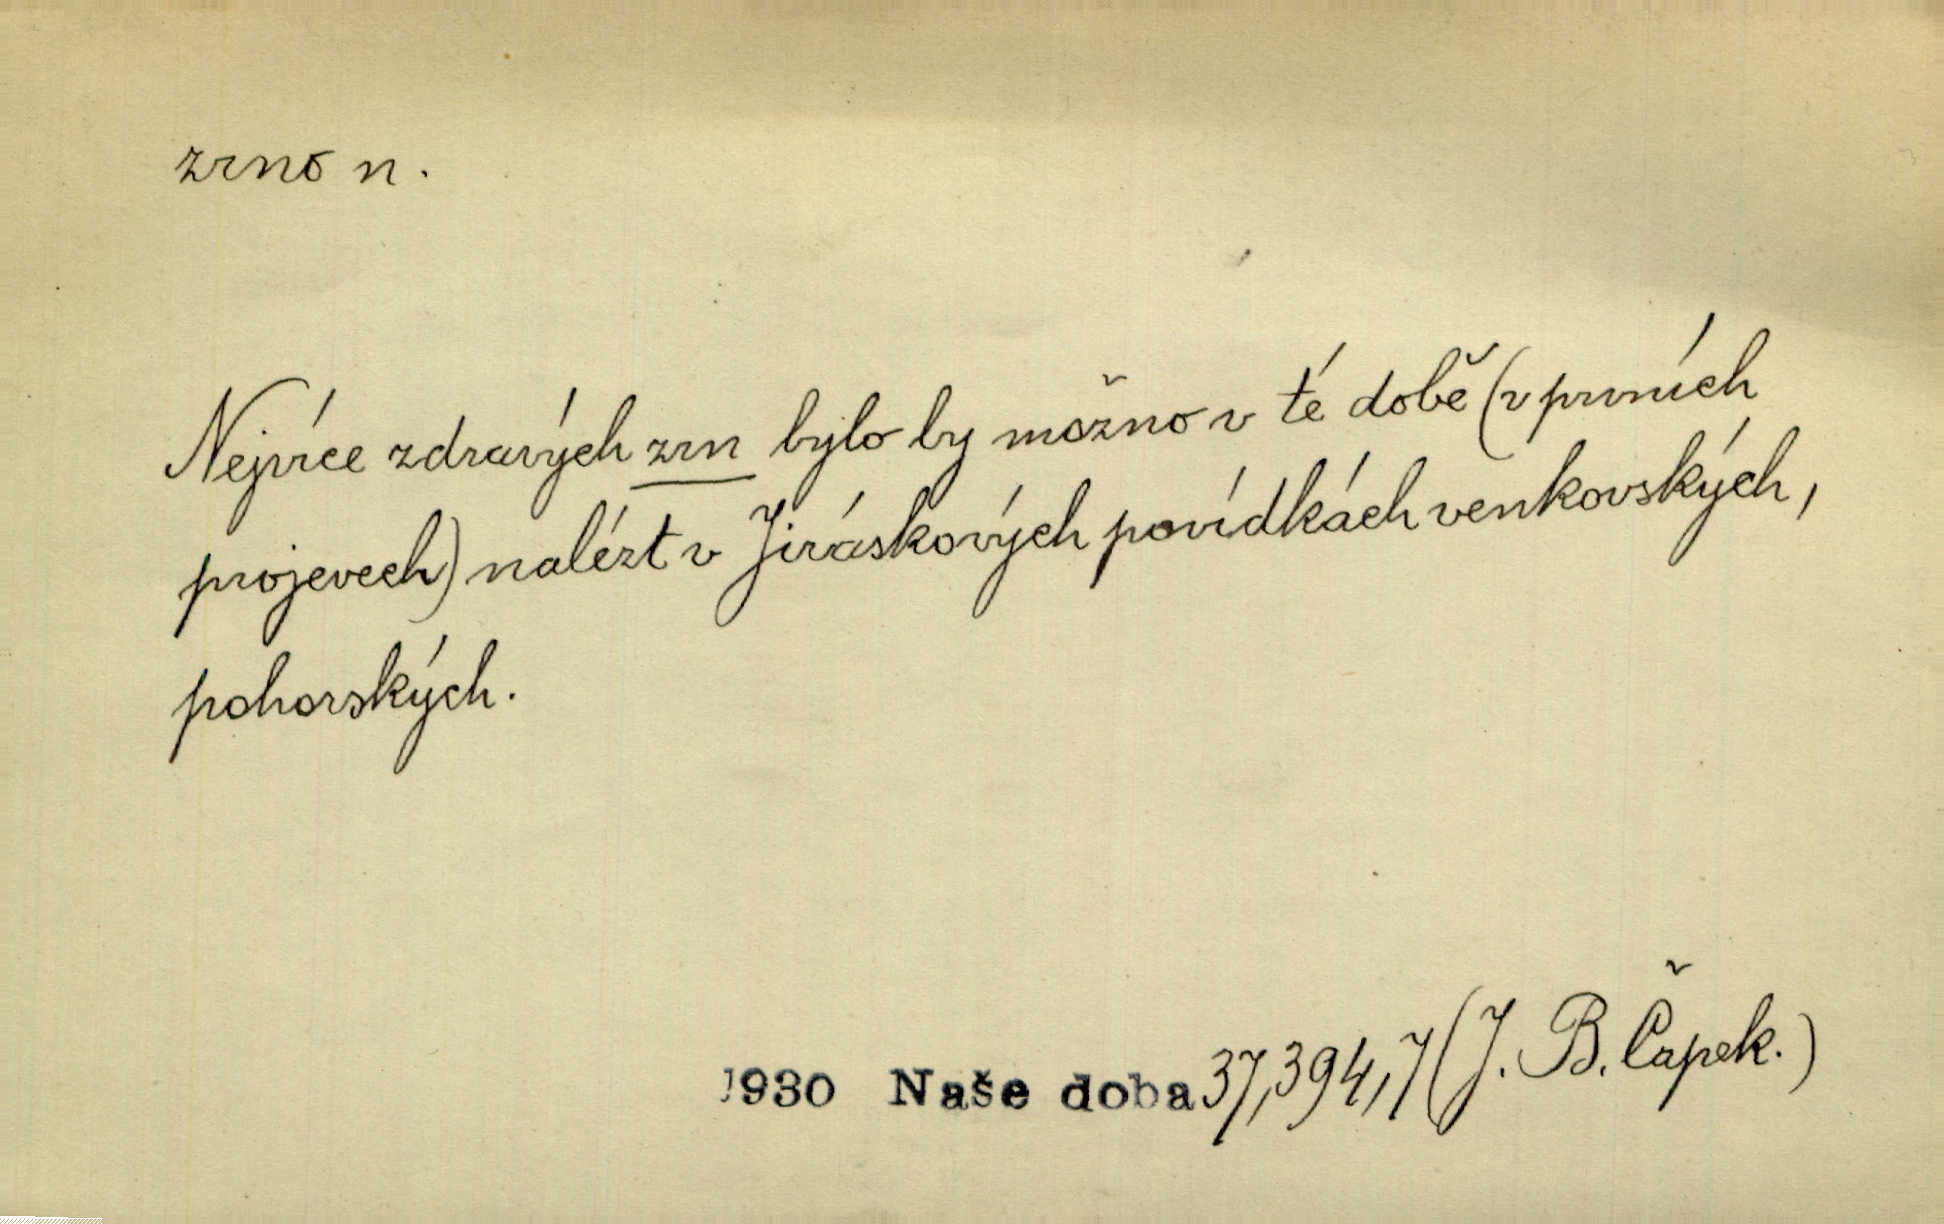 zrno n.
Nejvíce zdravých zrn bylo by možno v té době (v prvních
projevech) nalézt v Jiráskových povídkách venkovských,
pohorských.
1930 Naše doba 37,394,7 (J. B. Čapek.)